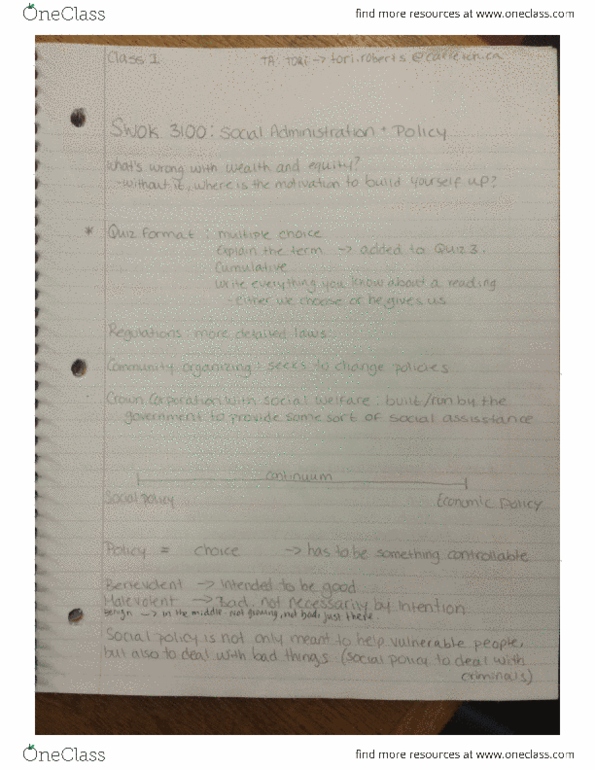 OneClass
find more resources at www.oneclass.com
Class 1 TA: Tori -> tori.roberts@carleton.ca
SWOK 3100: Social Administration + Policy
What's wrong with wealth and equity?
-without it, where is the motivation to build yourself up?
* Quiz Format: multiple choice
Explain the term -> added to Quiz 3.
Cumulative
Write everything you know about a reading
- either we choose or he gives us
Regulations: more detailed laws
Community organizing: seeks to change policies
Crown Corporation with social welfare: built/run by the
government to provide some sort of social assisstance
continuum
Social policy Economic Policy
Policy = choice -> has to be something controllable
Benevolent -> Intended to be good
Malevolent -> Bad, not necessarily by intention
Benign -> in the middle, not good, not bad, just there
Social policy is not only meant to help vulnerable people,
but also to deal with bad things (social policy to deal with
criminals)
OneClass
find more resources at www.oneclass.com